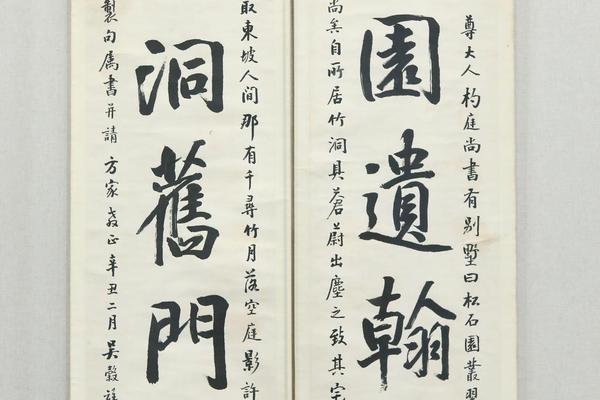 尊大人杓庭尚書有別墅曰松石園叢
園遺翰
尚矣自所居竹洞具蒼蔚出塵之致其宅
取東坡人間那有千尋竹月落空庭影許
洞舊門
製句属書并請 方家教正 辛丑二月 吳穀祥